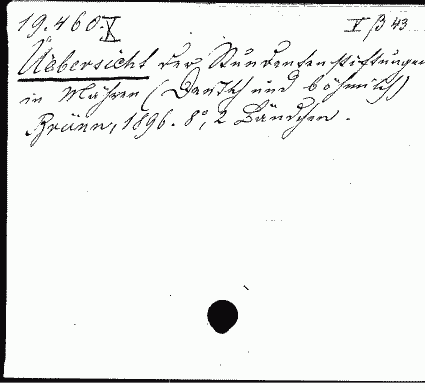 19.460.X V β 43
Uebersicht der Studentenstiftungen
in Mähren (Deutsch und böhmisch)
Brünn, 1896. 8°, 2 Bändchen.